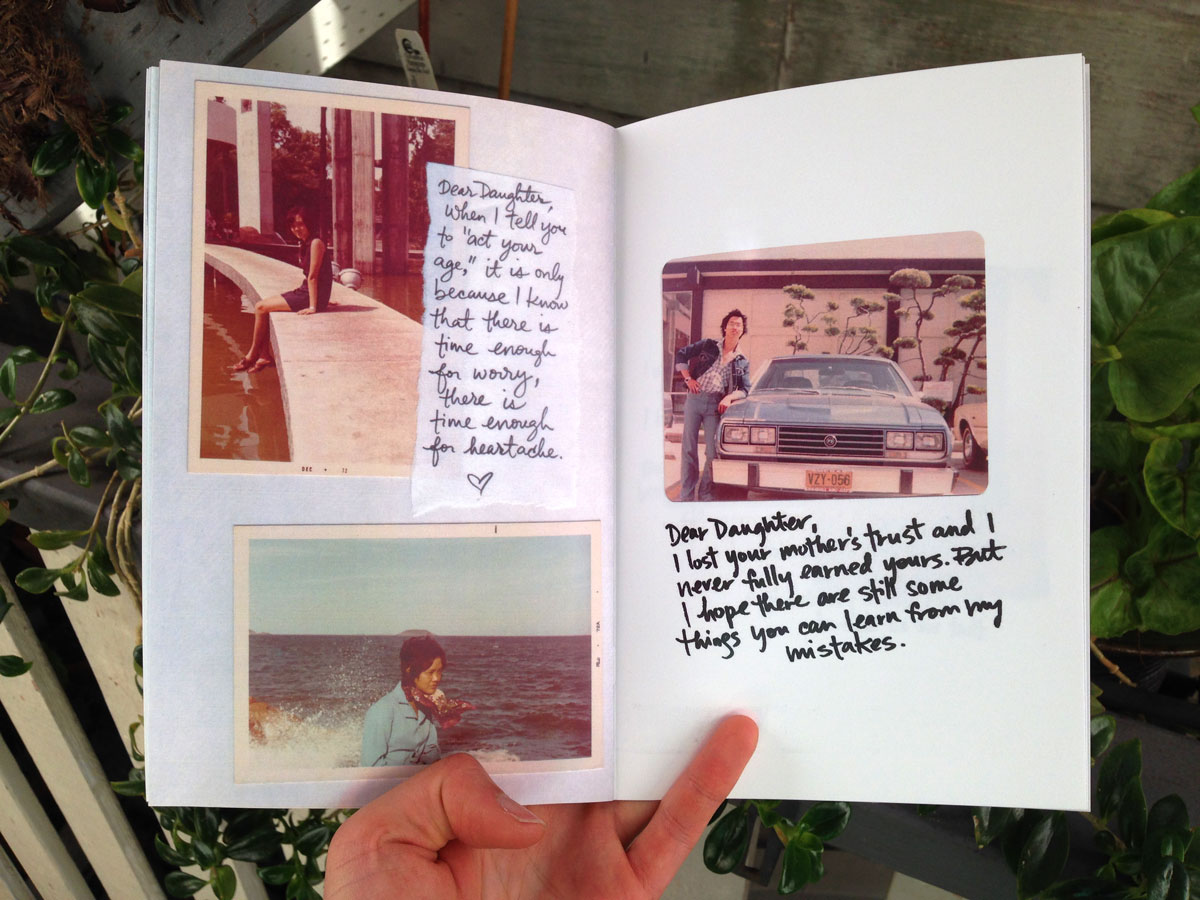 Dear Daughter,
When I tell you
to "act your
age," it is only
because I know
that there is
time enough
for worry,
there is
time enough
for heartache.
DEC • 72
VZY-056
Dear Daughter,
I lost your mother's trust and I
never fully earned yours. But
I hope there are still some
things you can learn from my
mistakes.